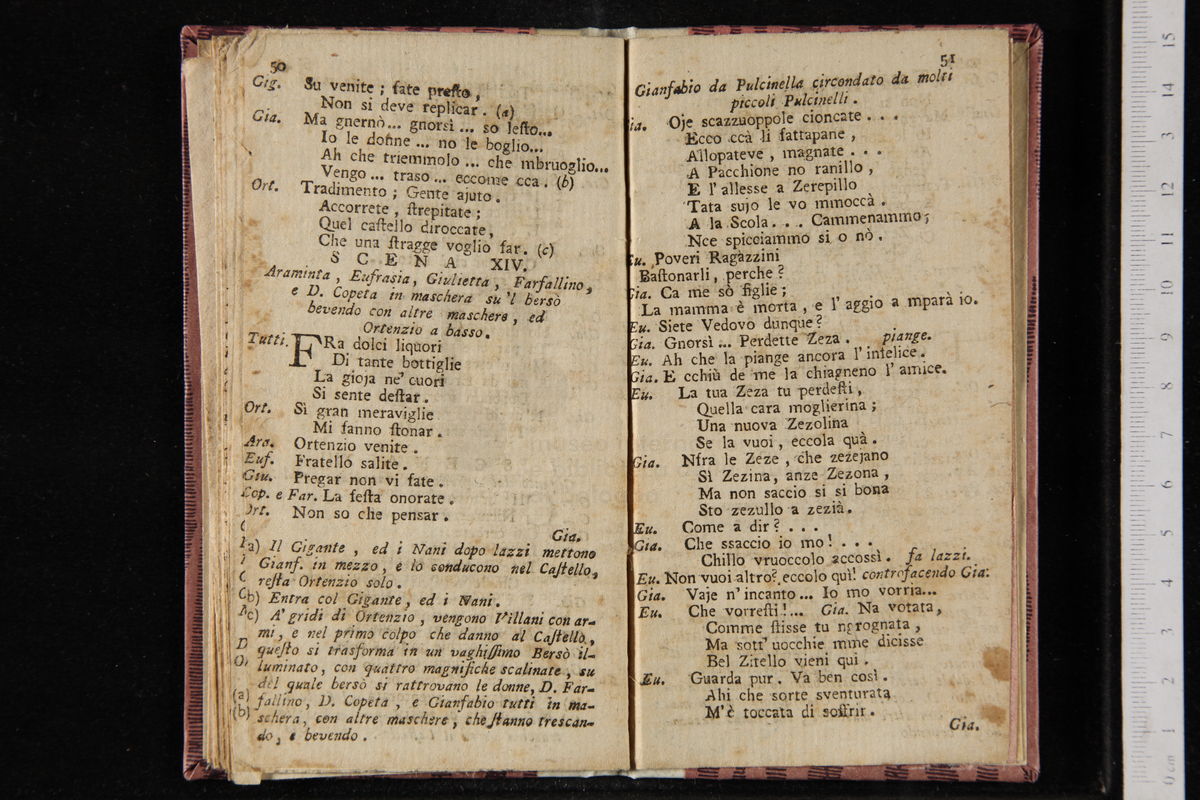 50
Gig. Su venite ; fate presto ,
Non si deve replicar . (a)
Gia. Ma gnernò... gnorsì ... so lesto...
Io le donne ... no le boglio...
Ah che triemmolo ... che mbruoglio...
Vengo ... traso ... eccome cca . (b)
Ort. Tradimento ; Gente ajuto .
Accorrete , strepitate ;
Quel castello diroccate,
Che una stragge voglio far. (c)
SCENA XIV.
Araminta , Eufrasia, Giulietta , Farfallino,
e D. Copeta in maschera su 'l bersò
bevendo con altre maschere, ed
Ortenzio a basso.
Tutti. FRa dolci liquori
Di tante bottiglie
La gioja ne' cuori
Si sente destar .
Ort. Sì gran meraviglie
Mi fanno stonar .
Ara. Ortenzio venite .
Euf. Fratello salite .
Giu. Pregar non vi fate .
Cop. e Far. La festa onorate .
Ort. Non so che pensar .
Gia.
a) Il Gigante , ed i Nani dopo lazzi mettono
Gianf. in mezzo, e lo conducono nel Castello,
resta Ortenzio solo .
b) Entra col Gigante, ed i Nani.
c) A' gridi di Ortenzio , vengono Villani con ar-
mi, e nel primo colpo che danno al Castello,
questo si trasforma in un vaghissimo Bersò il-
luminato, con quattro magnifiche scalinate, su
del quale bersò si rattrovano le donne, D. Far-
fallino, D. Copeta , e Gianfabio tutti in ma-
schera, con altre maschere, che stanno trescan-
do, e bevendo .
(a)
(b)
51
Gianfabio da Pulcinella circondato da molti
piccoli Pulcinelli .
ia. Oje scazzuoppole cioncate . . .
Ecco ccà li fattapane ,
Allopateve , magnate . . .
A Pacchione no ranillo ,
E l' allesse a Zerepillo
Tata sujo le vo mmoccà .
A la Scola . . . Cammenammo ;
Nce spicciammo si o nò .
u. Poveri Ragazzini
Bastonarli, perche ?
Gia. Ca me sò figlie ;
La mamma è morta , e l' aggio a mparà io.
Eu. Siete Vedovo dunque ?
Gia. Gnorsì ... Perdette Zeza . piange.
Eu. Ah che la piange ancora l' infelice .
Gia. E cchiù de me la chiagneno l' amice.
Eu. La tua Zeza tu perdesti ,
Quella cara moglierina ;
Una nuova Zezolina
Se la vuoi , eccola quà .
Gia. Nfra le Zeze , che zezejano
Sì Zezina, anze Zezona ,
Ma non saccio si si bona
Sto zezullo a zezià.
Eu. Come a dir ? . . .
Gia. Che ssaccio io mo ! . . .
Chillo vruoccolo accossì . fa lazzi.
Eu. Non vuoi altro? eccolo quì! controfacendo Gia.
Gia. Vaje n' incanto... Io mo vorria...
Eu. Che vorresti !... Gia. Na votata,
Comme stisse tu ngrognata ,
Ma sott' uocchie mme dicisse
Bel Zitello vieni qui .
Eu. Guarda pur . Va ben così .
Ahi che sorte sventurata
M'è toccata di soffrir .
Gia.
15
14
13
12
11
10
9
8
7
6
5
4
3
2
1
0 cm